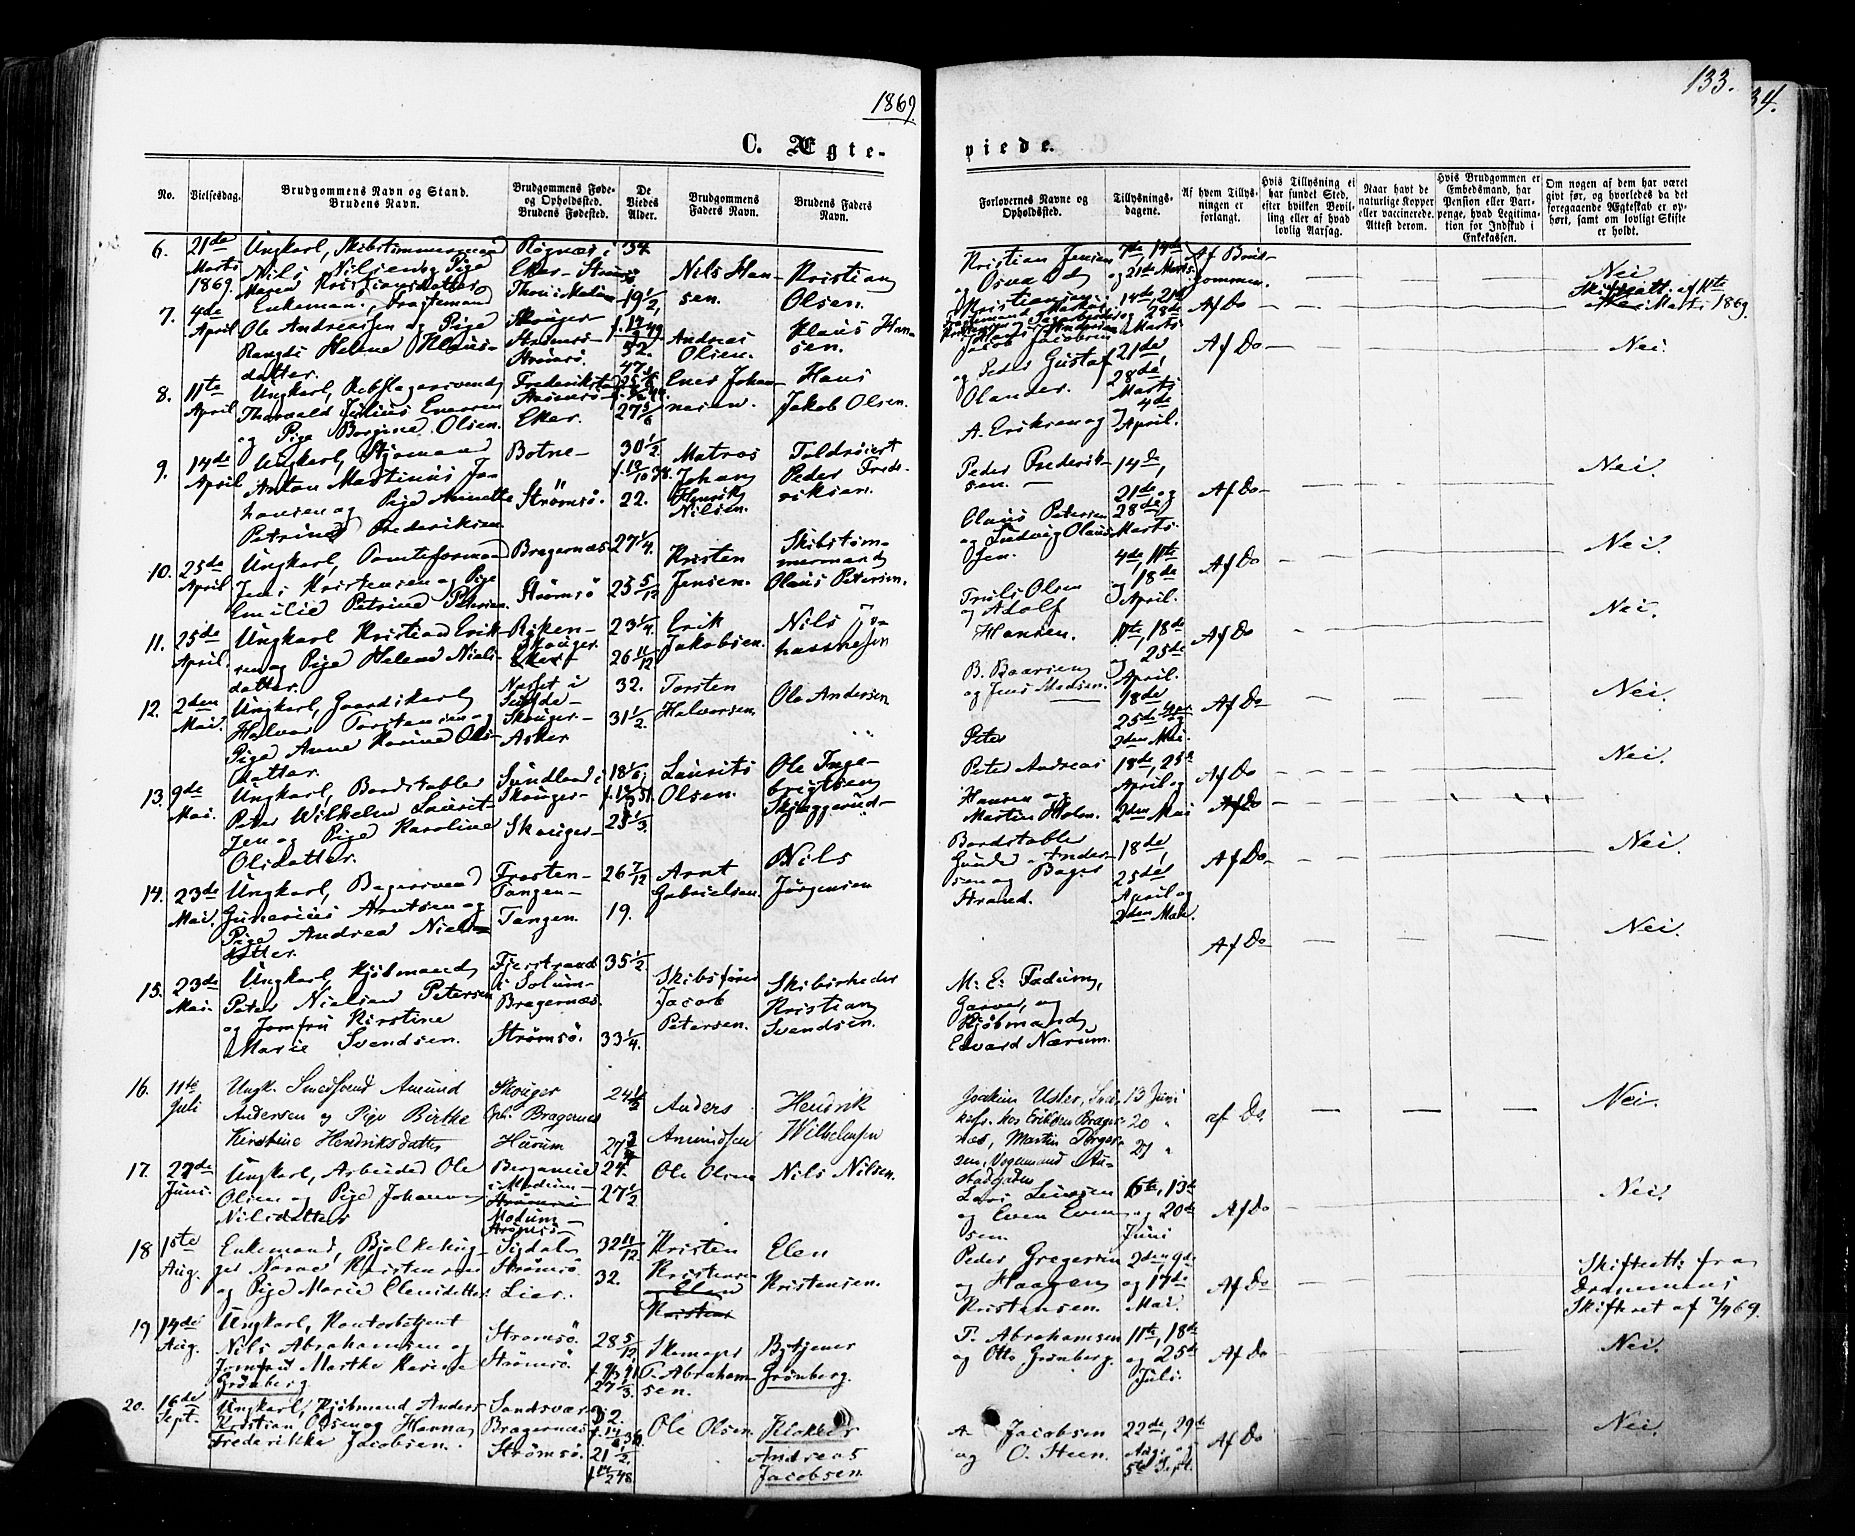 1869
133.
34.
C. Ægte-
viede.
No.
Vielsesdag.
Brudgommens Navn og Stand.
Brudens Navn.
Brudgommens Føde-
og Opholdssted.
Brudens Fødested.
De
Viedes
Alder.
Brudgommens
Faders Navn.
Brudens Faders
Navn.
Forlovernes Navne og
Opholdssted.
Tillysnings-
dagene.
Af hvem Tillys-
ningen er
forlangt.
Hvis Tillysning ei
har fundet Sted,
efter hvilken Bevil-
ling eller af hvad
lovlig Aarsag.
Naar havt de
naturlige Kopper
eller vaccinerede.
Attest derom.
Hvis Brudgommen er
Embedsmand, har
Pension eller Vart-
penge, hvad Legitima-
tion for Indskud i
Enkekassen.
Om nogen af dem har været
gift før, og hvorledes da det
foregaaende Ægteskab er op-
hørt, samt om lovligt Skifte
er holdt.
6. 21de Marts 1869.
Ungkarl, Skibstømmermand
Nils Nilsen og Pige
Maren Kristiansdatter
Eker - Strømsø
34
19 1/2
Nils Han-
sen.
Kristian
Olsen.
Kristian Jensen
7de, 14de
og 21de Marts.
Af Brud-
gommen.
Nei
7. 4de April
Enkemand,
Ole Andreassen og Pige
Rangdi Helene Klaus-
datter.
Skouger
Strømsø -
Strømsø.
52.
47.
Andreas
Olsen.
Klaus Han-
sen.
14de, 21de
og 28de
Marts
Af Do
Marts 1869.
8. 11te April
Ungkarl, Rebslagersvend
Thorvald Julius Enersen
og Pige Borgine Olsen.
Frederikstad
Strømsø -
Eker.
27 5/6
Ener Johan-
nesen.
Hans
Jakob Olsen.
Jacob Jacobsen
og Peder Gustaf
Olander.
21de,
28de,
Marts
4de
April.
Af Do
Nei.
9. 14de April
Ungkarl, Styrmand
Anton Martinus Jo-
hansen og Pige Annette
Petrine Frederiksen
Botne -
Strømsö.
30 1/2
22.
Matros
Johan
Henrik
Nilsen.
Toldrorert
Peder Fred-
riksen.
A. Eriksen og
Peder Frederik-
sen.
14de,
21de og
28de
Marts.
Af Do
Nei.
10. 25de April
Ungkarl, Tomteformand
Jens Kristensen og Pige
Emilie Petrine Petersen.
Bragernæs
Strømsö
27 1/4.
25 5/12
Kristen
Jensen.
Skibstøm-
mermand
Olaus Petersen.
Claus Petersen
og Ludvig Olaus
Olsen.
4de, 11te
og 18de
April.
Af Do
Nei.
11. 25de April.
Ungkarl Kristian Erik-
sen og Pige Helene Niels-
datter.
Røken -
Skouger.
Eker
23 1/4.
26 11/12
Erik
Jakobsen.
Nils Jo-
hannesen
Truls Olsen
og Adolf
Hansen.
11te, 18de
og 25de
April.
Af Do
Nei.
12. 2den Mai.
Ungkarl, Gaardskarl
Halvor Torstensen og
Pige Anne Karine Ols-
datter.
Skouger -
Asker
32.
31 1/2.
Torsten
Halvorsen.
Ole Andersen
B. Baarsen
og Jens Madsen.
18de
25de April
2den Mai.
Af Do
Nei.
13. 9de Mai.
Ungkarl, Bordstabler
Peter Wilhelm Laurit-
zen og Pige Karoline
Olsdatter.
Sundland i
Skouger -
Skouger -
18 1/6
23 1/3.
Laurits
Olsen.
Ole Inge-
brigtsen
Skjæggerud.
Peter
Peter Andreas
Hansen og
Martin Holm.
18de, 25de
April og
2den Mai
Af Do
Af Do
Nei.
14. 23de Mai.
Ungkarl, Bagersvend
Gunerius Arntsen og
Pige Andrea Niels-
datter.
Frosten -
Tangen -
Tangen.
26 7/12
19.
Arnt
Gabrielsen.
Nils
Jørgensen
Bordstabler
Gunder Ander-
sen og Bager
Strand.
18de,
25de,
April og
2den Mai.
Af Do
Nei.
15. 23de Mai.
Ungkarl, Kjöbmand
Peter Nielsen Petersen
og Jomfru Kirstine
Marie Svendsen.
Fjerstrand
i Solum -
Bragernæs.
Strømsö.
35 1/2
33 1/4.
Skibsfører
Jacob
Petersen.
Skibsrheder
Kristian
Svendsen.
M. E. Fadum,
Garver, og
Kjöbmand
Edvard Nærum.
Af Do
Nei.
16. 11te Juli
Ungk. Smedsvend Amund
Andersen og Pige Birthe
Kirstine Hendriksdatter
Skouger
Oph. Bragernes
Hurum
24 1/2
27 3/4
Anders
Amundsen
Hendrik
Wilhelmsen
Joakim Usler,
hos Eriksen Brager-
næs, Martin Torger-
sen, Vognmand
13 Juni
20 "
27 "
af Do
Nei.
17. 27de Juni.
Ungkarl, Arbeider Ole
Olsen og Pige Johanne
Nilsdatter
i Modum -
Modum -
Strømsø -
24.
27 1/2
Ole Olsen
Nils Nilsen.
Lars Larsen
og Even Even-
sen.
6te, 13de
og 20de
Juni
Af Do
Nei.
18 1ste Aug.
Enkemand, Bjelkehug-
ger Narve Kristensen
og Pige Marie Elensdatter.
Sigdal -
Strømsö.
Lier.
32 11/12
32.
Kristen
Kristensen
Elen
Kristensen.
Peder Gregersen
og Haagen
Kristensen.
2den, 9de
og 17de
Mai.
Af Do
Skifteatt. fra
Drammens
Skifteret af 2/7 69.
19 14de Aug.
Ungkarl, Kontorbetjent
Nils Abrahamsen og
Jomfru Marthe Karine
Grönberg
Strømsö.
Strømsö.
28 5/12
27 1/3.
Skomager
T. Abraham-
sen.
Bytjener
Grönberg.
T. Abrahamsen
og Otto Grönberg.
11te, 18de
og 25de
Juli.
Af Do
Nei.
20. 16de Sept.
Ungkarl, Kjöbmand Anders
Kristian Olsen og Hanna
Frederikke Jacobsen.
Sandsvær
Bragernæs
Strømsö.
32.
21 1/2.
Ole Olsen
Klokker
Andreas
Jacobsen.
A. Jacobsen
og O. Steen.
22de, 29de
Aug. og
5te Sept.
Af Do
Nei.